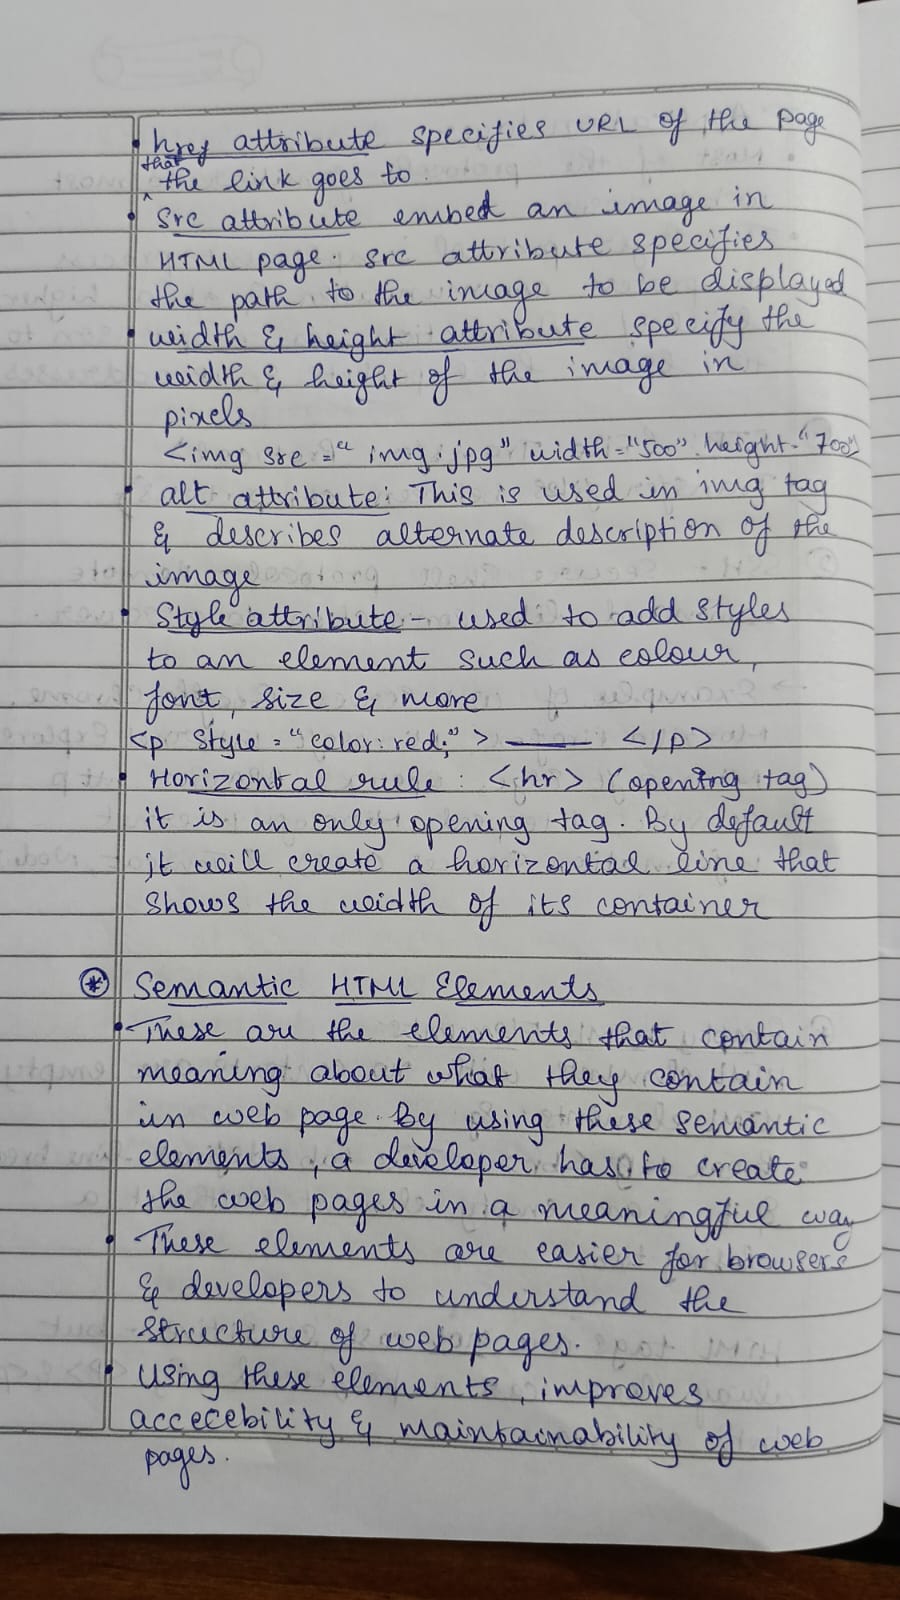 • href attribute specifies URL of the page
that
^ the link goes to.
• Src attribute embed an image in
HTML page. src attribute specifies
the path to the image to be displayed
• width & height attribute specify the
width & height of the image in
pixels
<img src = "img.jpg" width="500" height="700">
• alt attribute: This is used in img tag
& describes alternate description of the
image
• Style attribute - used to add styles
to an element such as colour,
font, size & more
<p style = "color: red;" > ——— </p>
• Horizontal rule : <hr> (opening tag)
it is an only opening tag. By default
it will create a horizontal line that
shows the width of its container
⊛ Semantic HTML Elements
• These are the elements that contain
meaning about what they contain
in web page. By using these semantic
elements, a developer has to create
the web pages in a meaningful way
• These elements are easier for browsers
& developers to understand the
structure of web pages.
• Using these elements, improves
accecebility & maintainability of web
pages.